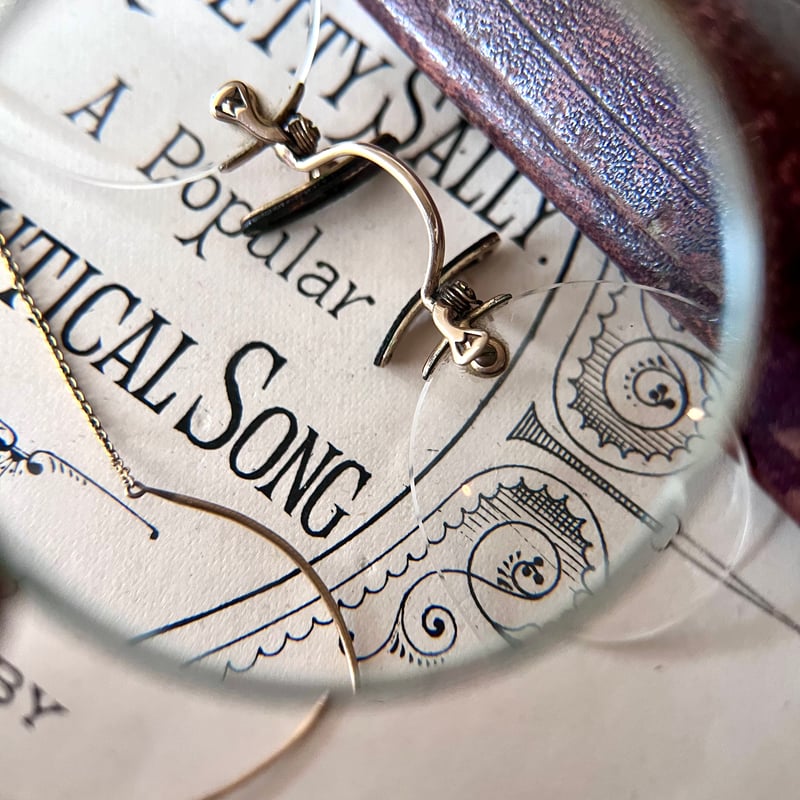 ETTY SALLY.
A Popular
TICAL SONG
BY